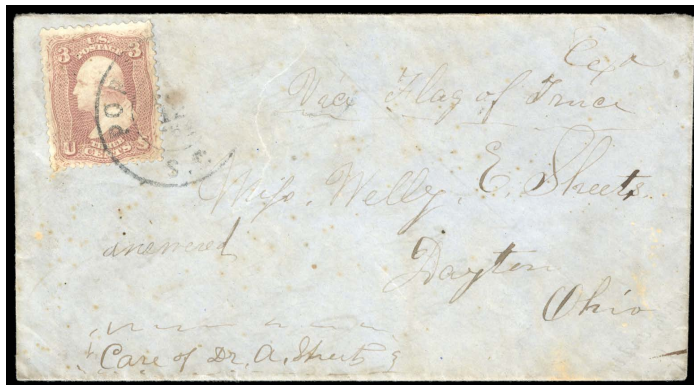 3 U.S. POSTAGE 3
U THREE CENTS S
PO
U.S.
Exd
Flag of Truce
Miss. Welly. E. Sheets.
answered
Dayton
Ohio
Care of Dr. A. Sheets